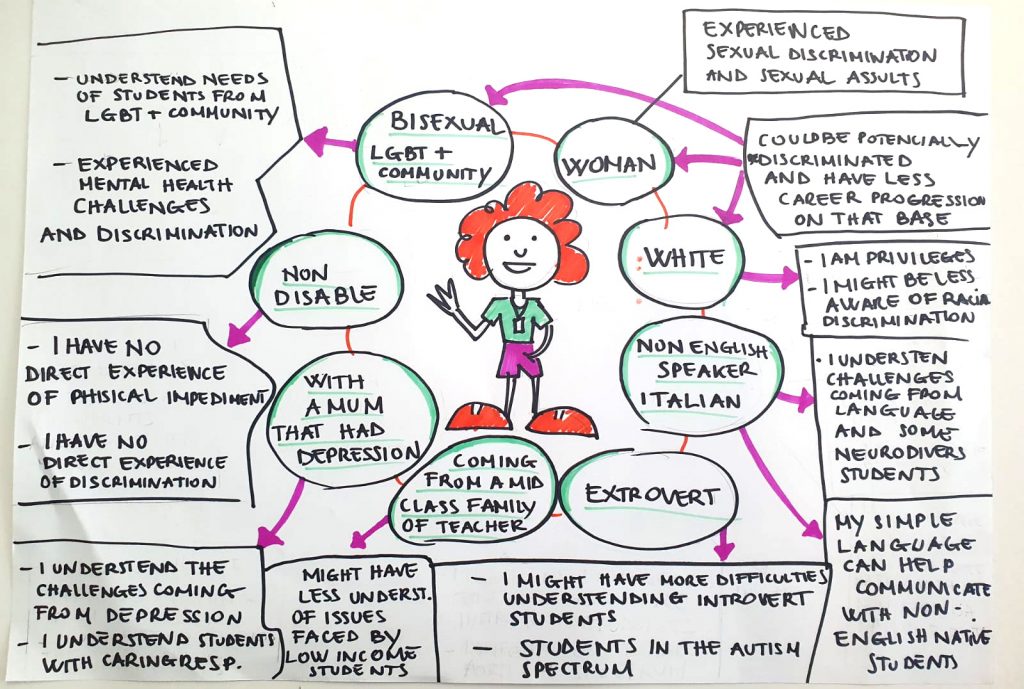 EXPERIENCED
SEXUAL DISCRIMINATION
AND SEXUAL ASSULTS
- UNDERSTEND NEEDS
OF STUDENTS FROM
LGBT + COMMUNITY
- EXPERIENCED
MENTAL HEALTH
CHALLENGES
AND DISCRIMINATION
BISEXUAL
LGBT +
COMMUNITY
WOMAN
COULDBE POTENCIALLY
DISCRIMINATED
AND HAVE LESS
CAREER PROGRESSION
ON THAT BASE
WHITE
- I AM PRIVILEGES
- I MIGHT BE LESS
AWARE OF RACIA
DISCRIMINATION
NON
DISABLE
- I HAVE NO
DIRECT EXPERIENCE
OF PHISICAL IMPEDIMENT
- I HAVE NO
DIRECT EXPERIENCE
OF DISCRIMINATION
NON ENGLISH
SPEAKER
ITALIAN
• I UNDERSTEN
CHALLENGES
COMING FROM
LANGUAGE
AND SOME
NEURODIVERS
STUDENTS
WITH
A MUM
THAT HAD
DEPRESSION
COMING
FROM A MID
CLASS FAMILY
OF TEACHER
EXTROVERT
- I UNDERSTEND THE
CHALLENGES COMING
FROM DEPRESSION
- I UNDERSTEND STUDENTS
WITH CARING RESP.
MIGHT HAVE
LESS UNDERST.
OF ISSUES
FACED BY
LOW INCOME
STUDENTS
- I MIGHT HAVE MORE DIFFICULTIES
UNDERSTENDING INTROVERT
STUDENTS
- STUDENTS IN THE AUTISM
SPECTRUM
MY SIMPLE
LANGUAGE
CAN HELP
COMMUNICATE
WITH NON-
ENGLISH NATIVE
STUDENTS